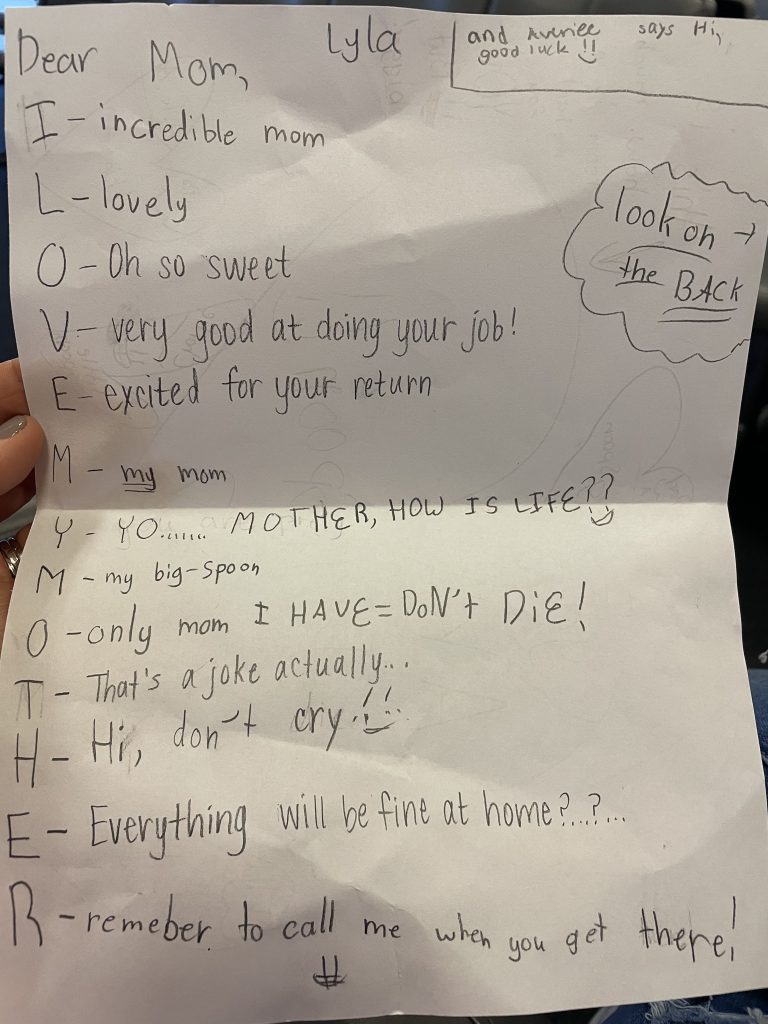 Dear Mom,
Lyla
and Averiee says Hi,
good luck !!
I - incredible mom
L - lovely
O - Oh so sweet
V - very good at doing your job!
E - excited for your return
look on →
the BACK
M - my mom
Y - YO....... MOTHER, HOW IS LIFE??
M - my big-spoon
O - only mom I HAVE = DoN't DiE!
T - That's a joke actually...
H - Hi, don't cry.
E - Everything will be fine at home?...?...
R - remeber to call me when you get there!